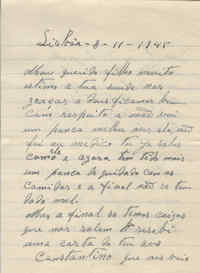 Lisboa - 8 - 11 - 1945
Meu querido filho muito
estimo a tua saude nos
graças a Deus ficamos bem
Com respeito a mão vai
um pouco melhor mas ela não
foi ao medico tu já sabes
como e agora tem tido mais
um pouco de cuidado com as
comidas e a final não se tem
dado mal.
a final se temos coizas
que nos ralem recebi
uma carta do teu avô
Constantino que nos veio